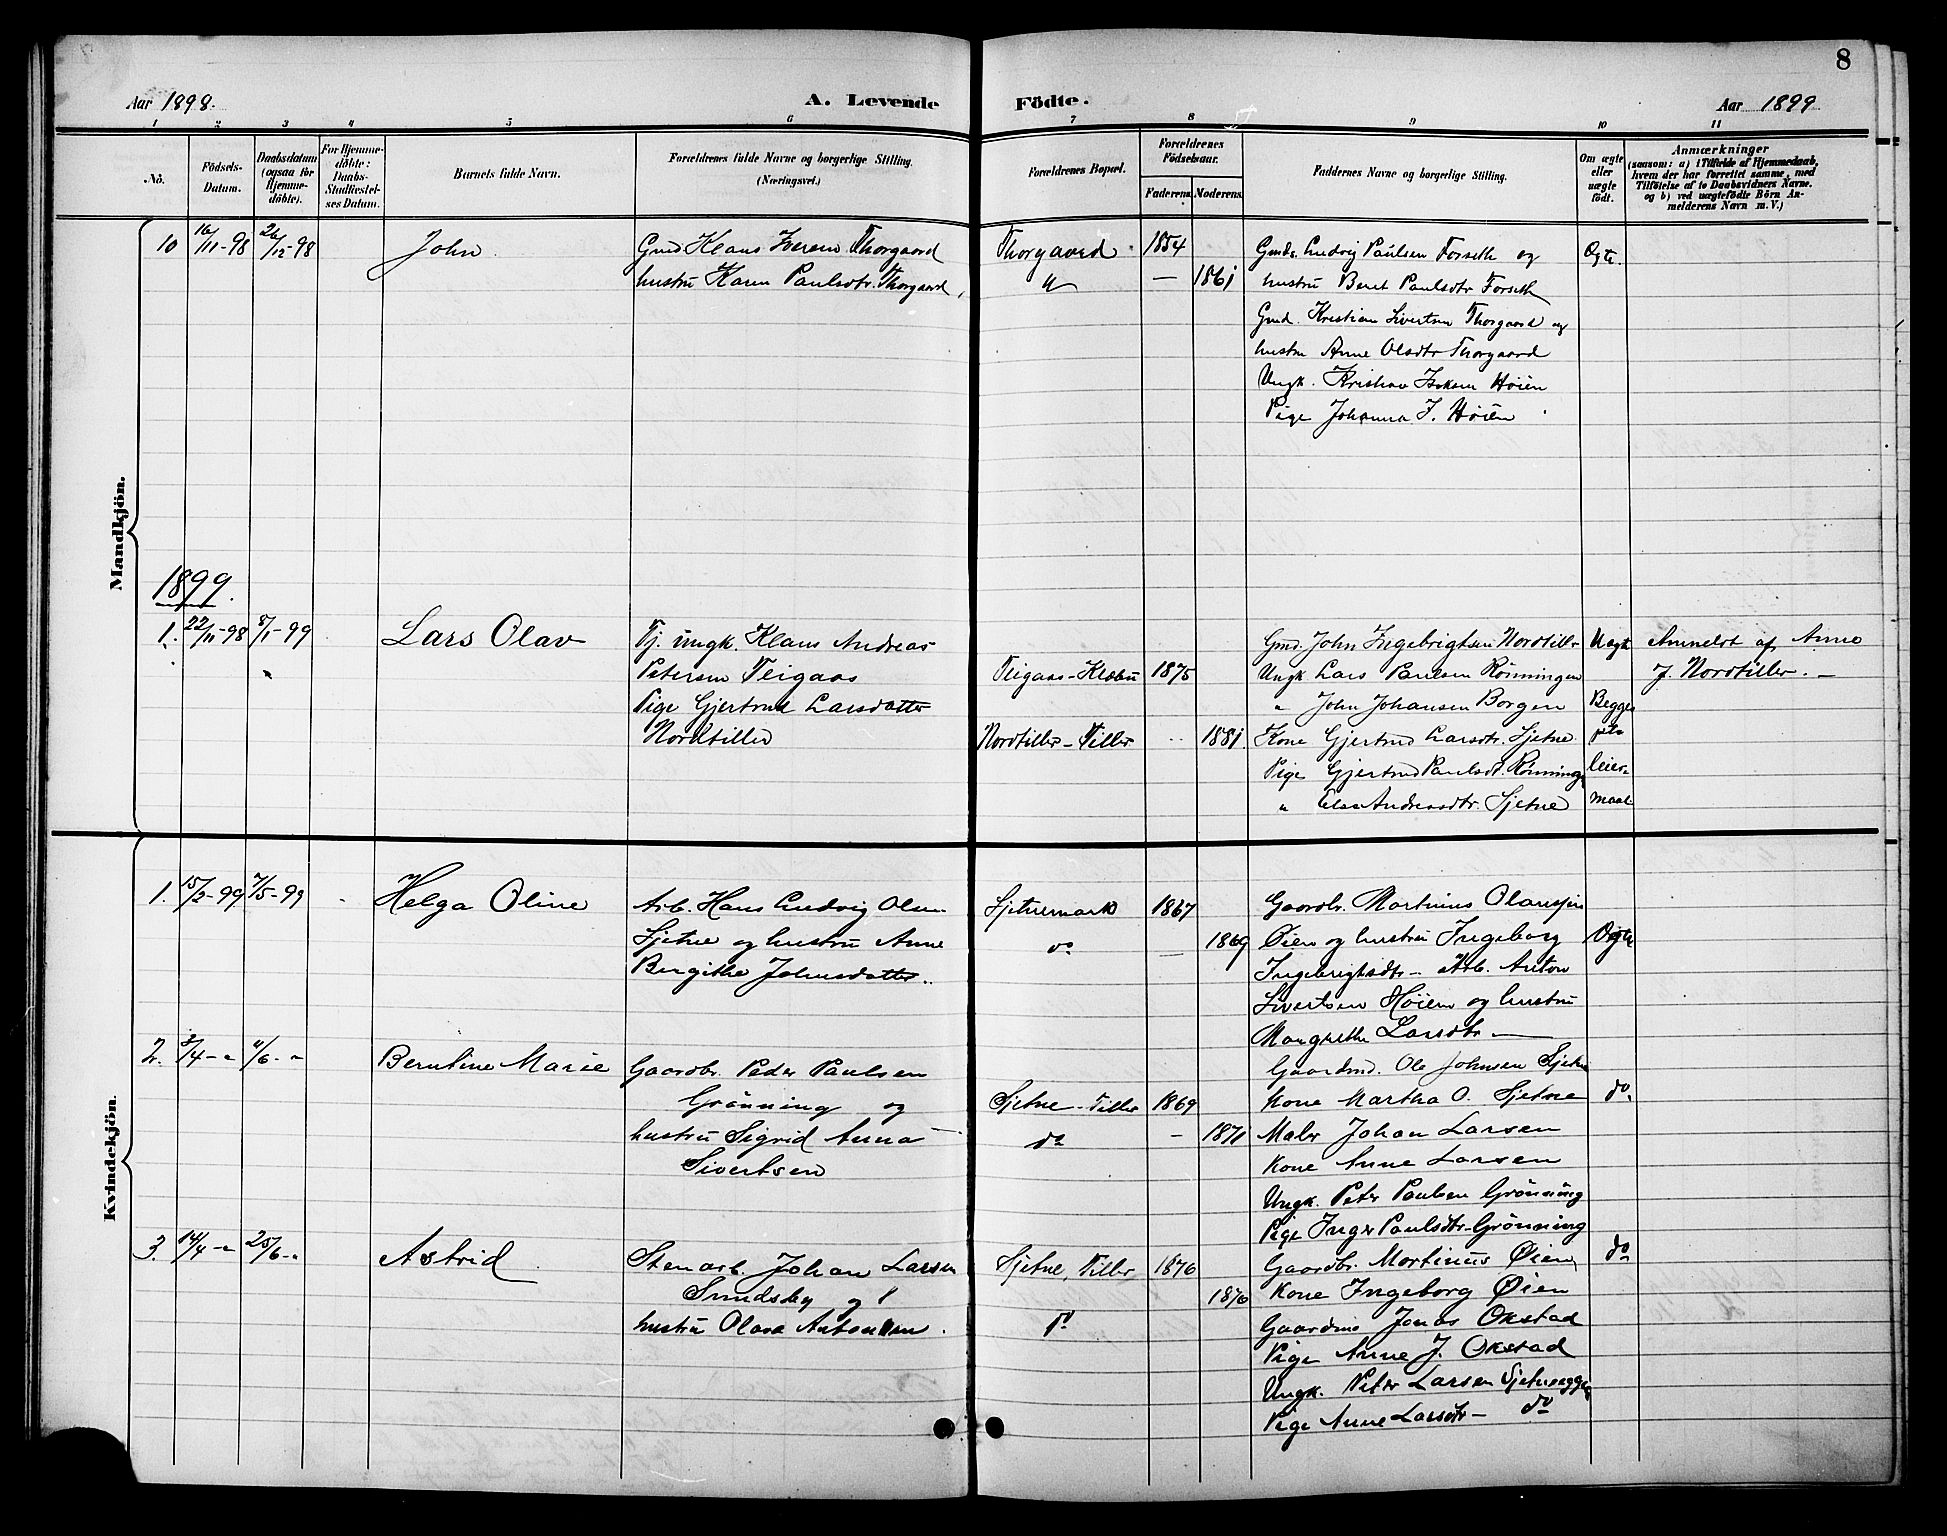 8
Aar 1898. A. Levende Födte. Aar 1899
1 2 3 4 5 6 7 8 9 10 11
No. Födsels-Datum. Daabsdatum (ogsaa for Hjemmedöbte). For Hjemmedöbte: Daabs-Stadfæstelses Datum. Barnets fulde Navn. Forældrenes fulde Navne og borgerlige Stilling. (Næringsvei.) Forældrenes Bopæl. Forældrenes Födselsaar. Faderens. Moderens. Faddernes Navne og borgerlige Stilling. Om ægte eller uægte födt. Anmærkninger (saasom: a) i Tilfælde af Hjemmedaab, hvem der har forrettet samme, med Tilföielse af to Daabsvidners Navne. og b) ved uægtefödte Börn Anmelderens Navn m. V.)
Mandkjön.
10 16/11-98 26/12-98 John Gmd Klaus Iversen Thorgaard Thorgaard 1854 Gmds. Ludvig Paulsen Forseth og Ægte.
hustru Karen Paulsdtr. Thorgaard " — 1861 hustru Beret Paulsdtr Forseth
Gmd. Kristian Sivertsen Thorgaard og
hustru Anne Olsdtr Thorgaard
Ungk. Kristian Høien
Pige Johanna J. Høien
1899.
1. 22/11-98 8/1-99 Lars Olav Tj. ungk. Klaus Andreas Gmd. John Ingebrigtsen Nordtiller Uægte Anmeldt af Anne
Petersen Teigaas Teigaas-Klæbu 1875 Ungk Lars Paulsen Rønningen J. Nordtiller. —
Pige Gjertrud Larsdatter " John Johansen Borgen Begges
Nordtiller Nordtiller-Tiller 1881 Kone Gjertrud Larsdtr. Sjetne
Pige Gjertrud Paulsdt. Rønning leier-
" Andreasdtr. Sjetne maal
Kvindekjön.
1. 15/2-99 7/5-99 Helga Oline Arb. Hans Ludvig Olsen Sjetnemark 1867 Gaardbr. Martinus
Sjetne og hustru Anne do — 1869 Øien og hustru Ingeborg Ægte
Bergithe Johnsdatter. Ingebrigtsdtr - Arb. Anton
Sivertsen Høien og hustru
Margrethe Larsdtr —
2. 3/4 - " 4/6 - " Berntine Marie Gaardbr. Peder Paulsen Gaardmd. Ole Johnsen Sjetne
Grønning og Sjetne-Tiller 1869 Kone Martha O. Sjetne do
hustru Sigrid Anna do — 1871 Maler Johan Larsen
Sivertsen Kone Anne Larsen
Ungk. Peter Paulsen Grønning
Pige Inger Paulsdtr. Grønning
3. 14/4 - " 25/6 - " Astrid Stenarb. Johan Larsen Sjetne, Tiller 1876 Gaardbr. Martinus Øien do
og 1876 Kone Ingeborg Øien
hustru Olava Antonsen. do Gaardmd Jonas Okstad
Pige Anne J. Okstad
Ungk. Peter Larsen
Pige Anne Larsdtr — do